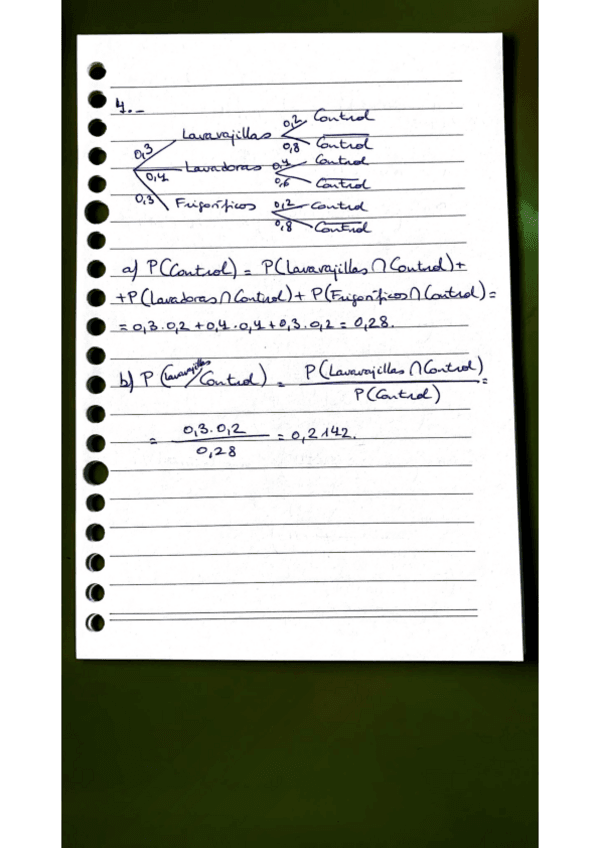 4.-
0,2 Control
Lavavajillas
0,3 0,8 C̅o̅n̅t̅r̅o̅l̅
Lavadoras 0,4 Control
0,4 0,6 C̅o̅n̅t̅r̅o̅l̅
0,3 Frigoríficos 0,2 Control
0,8 C̅o̅n̅t̅r̅o̅l̅
a) P(Control) = P(Lavavajillas ∩ Control) +
+ P(Lavadoras ∩ Control) + P(Frigoríficos ∩ Control) =
= 0,3 · 0,2 + 0,4 · 0,4 + 0,3 · 0,2 = 0,28.
b) P(Lavavajillas/Control) = P(Lavavajillas ∩ Control) / P(Control) =
= 0,3 · 0,2 / 0,28 = 0,2142.